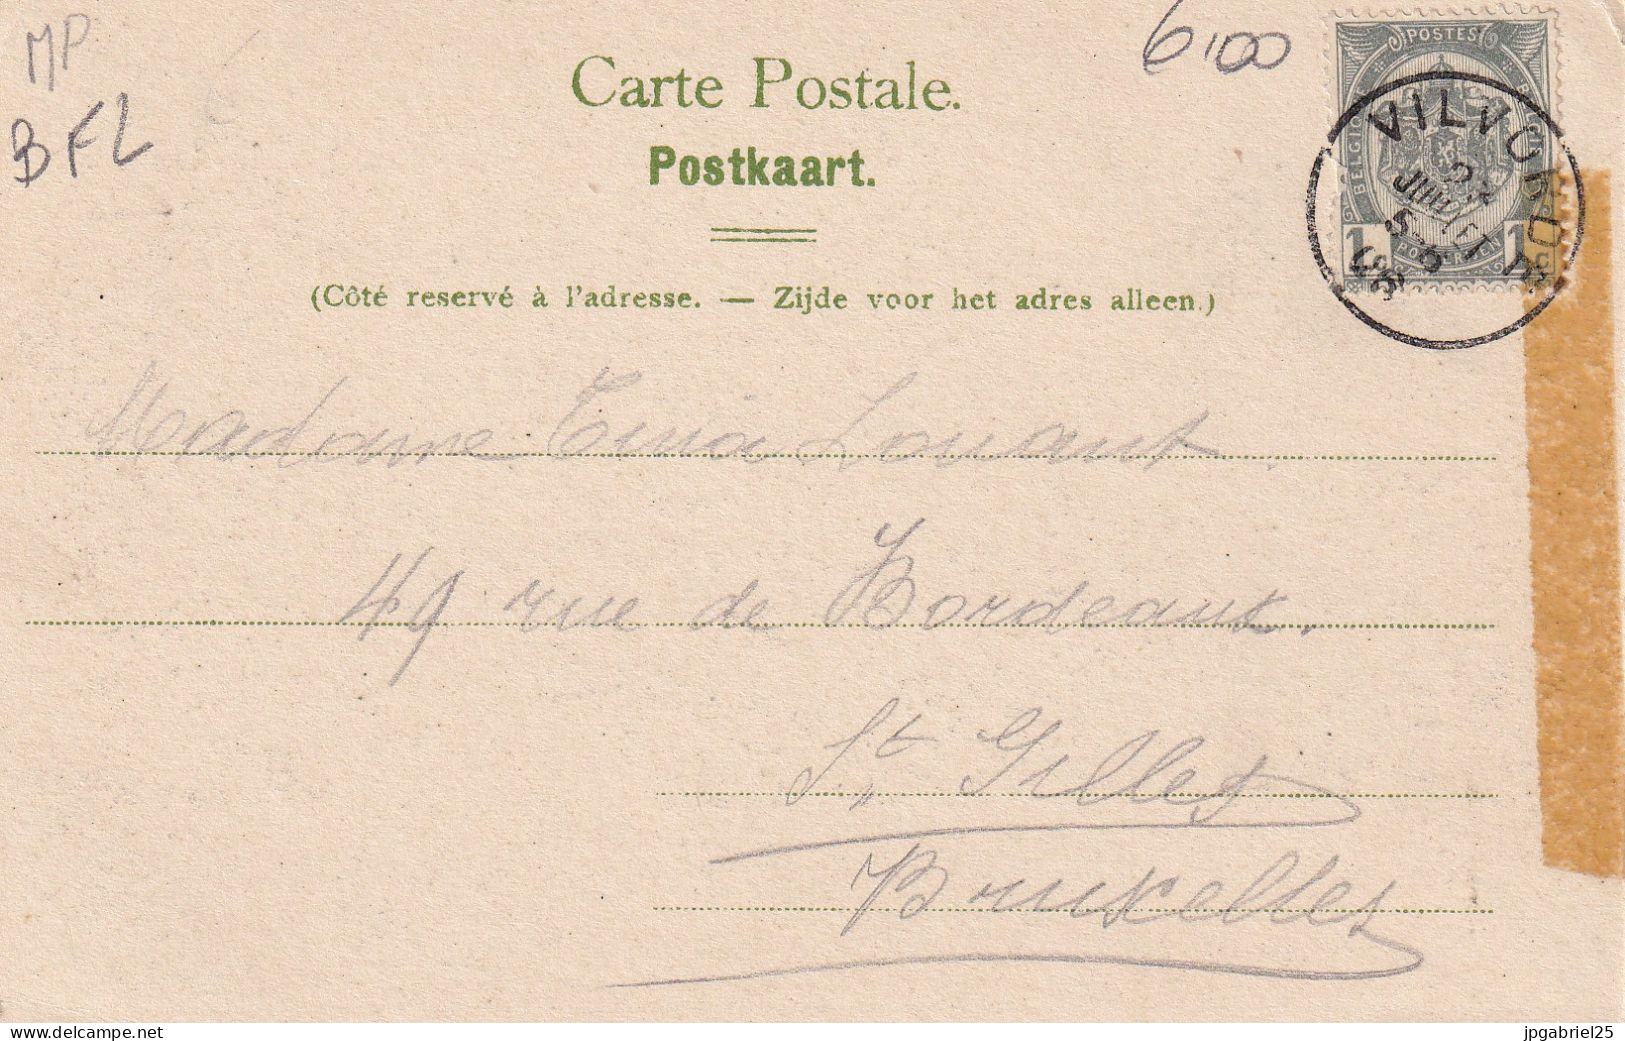 MP
BFL
6,00
Carte Postale.
Postkaart.
(Côté reservé à l'adresse. — Zijde voor het adres alleen.)
POSTES
BELGIQUE
1
1
VILVORD
JUILLET
5-6
Madame Louant.
49 rue de Bordeaux.
St Gilles
Bruxelles
www.delcampe.net
jpgabriel25